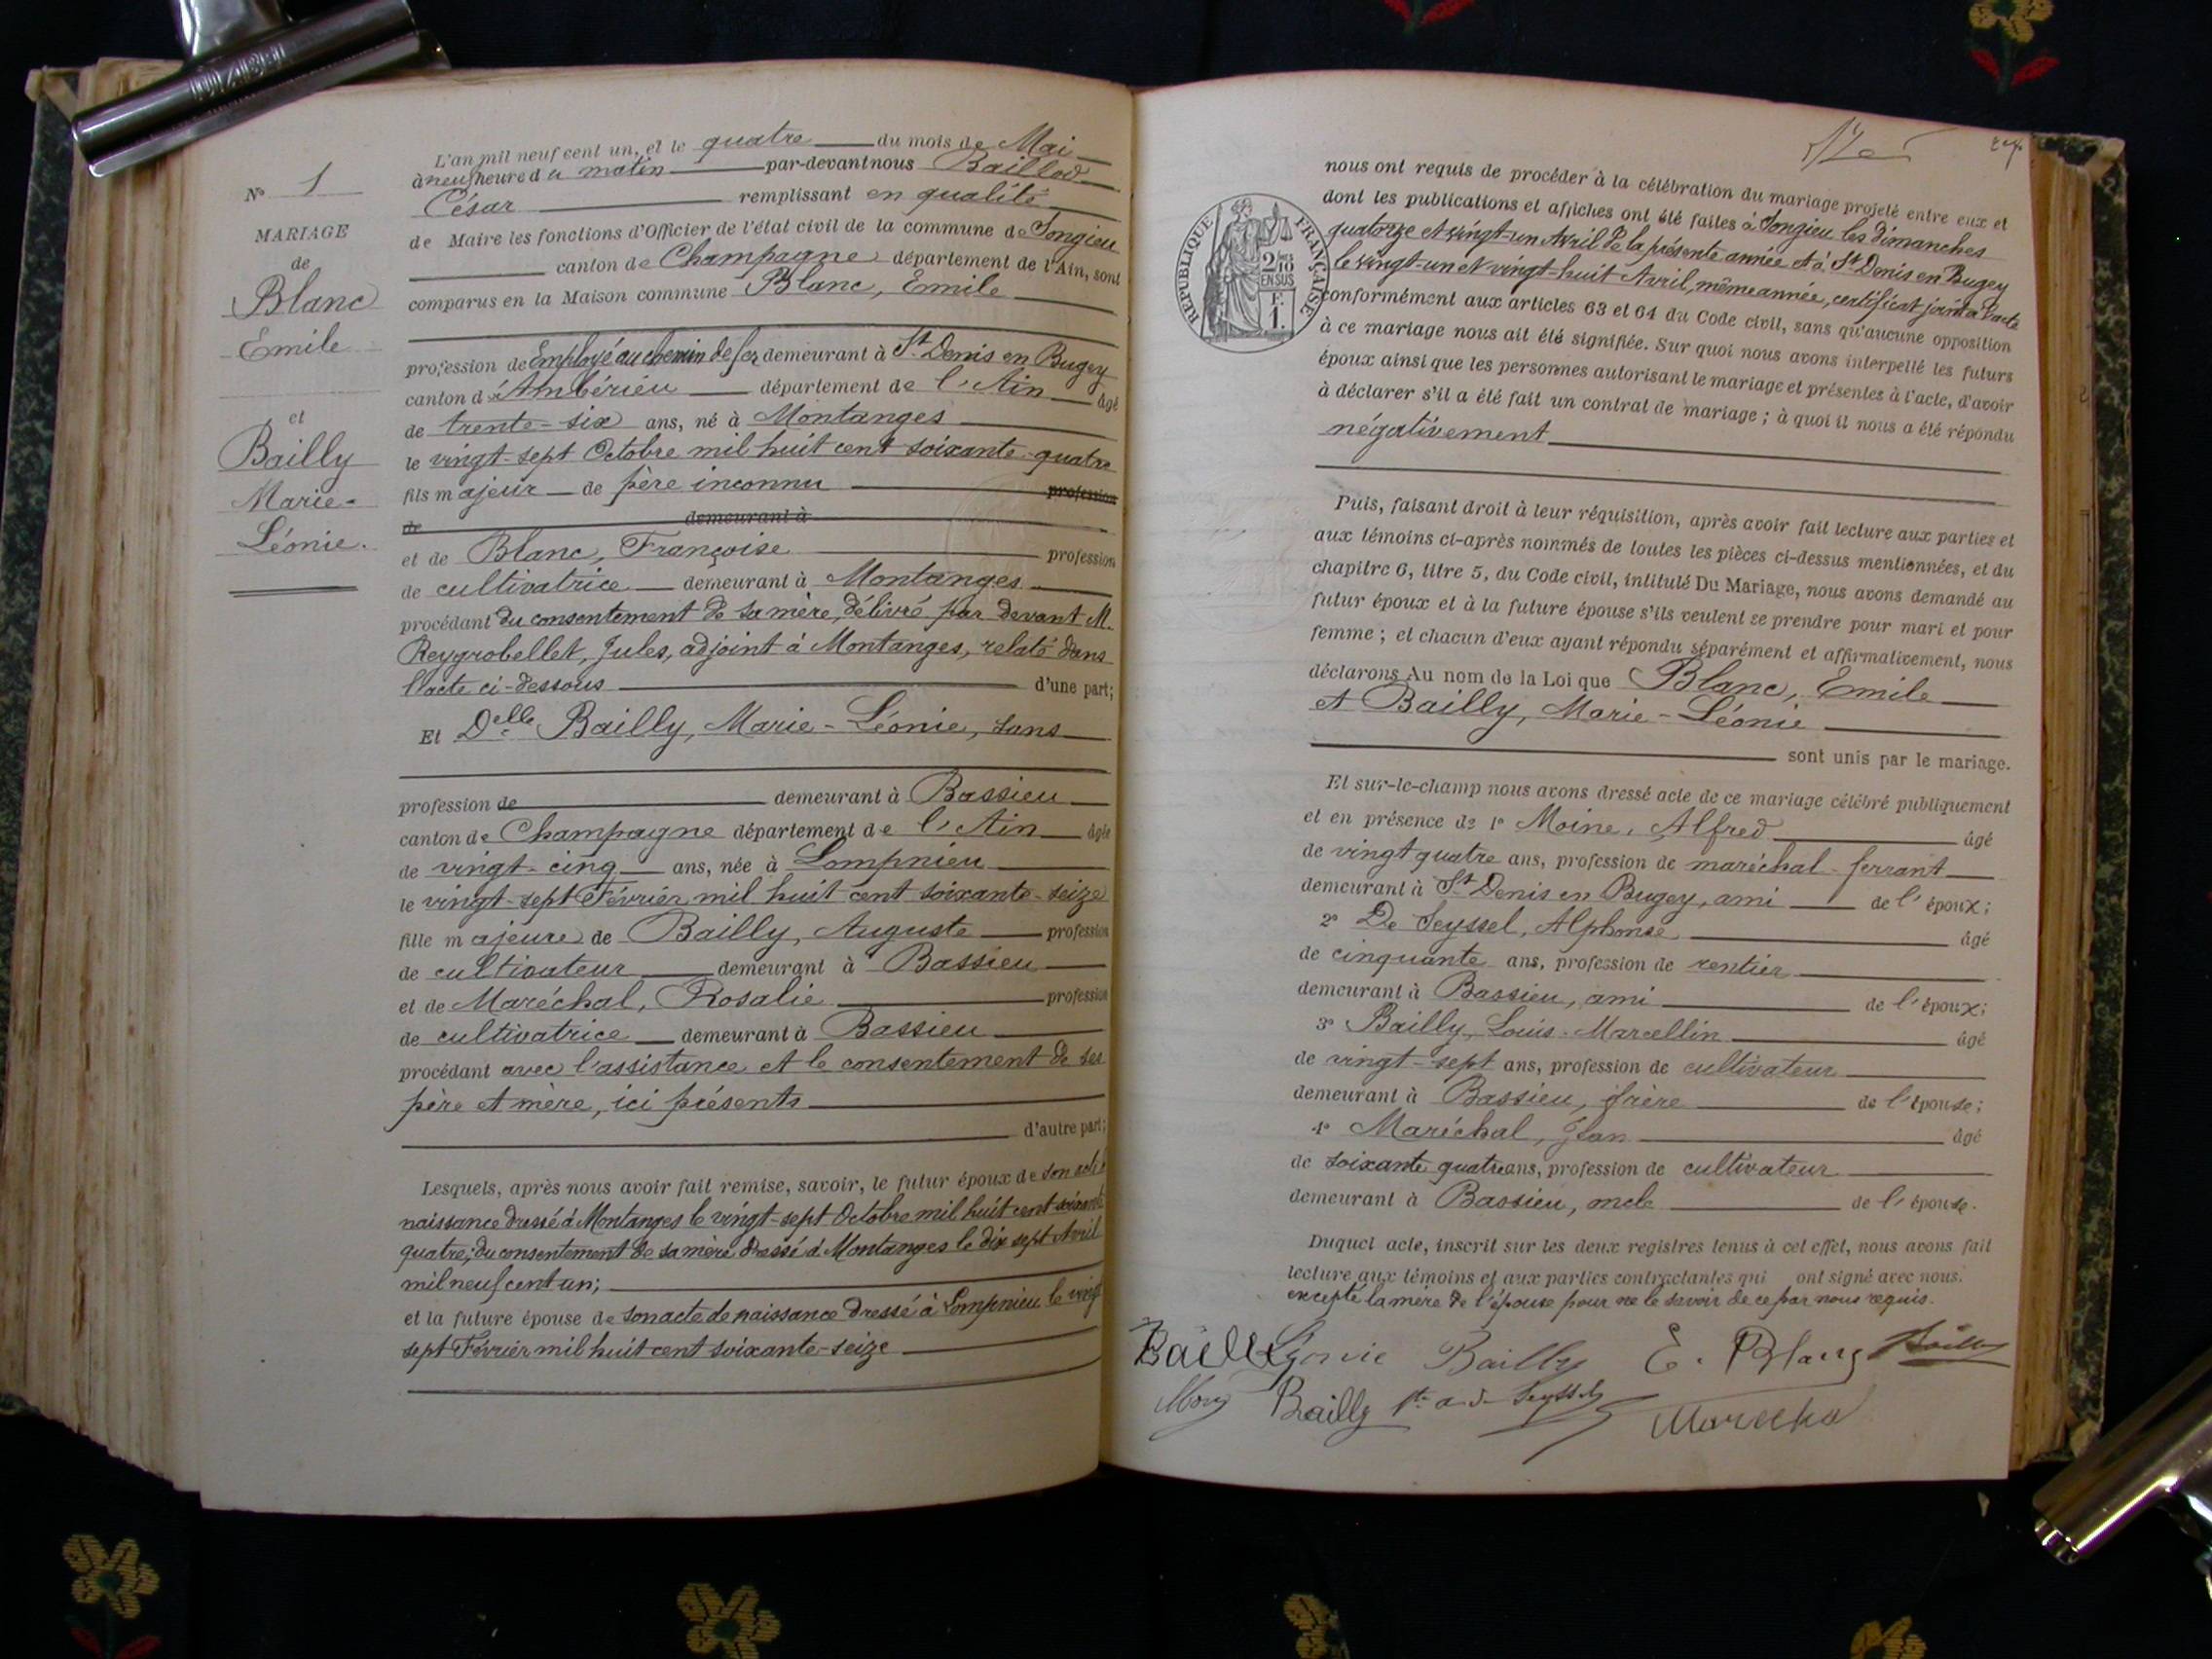 N° 1
MARIAGE
de
Blanc
Emile
et
Bailly
Marie-
Léonie.
L'an mil neuf cent un, et le quatre du mois de Mai
à neuf heure du matin par-devant nous Baillod
César remplissant en qualité
de Maire les fonctions d'Officier de l'état civil de la commune de Songieu
canton de Champagne département de l'Ain, sont
comparus en la Maison commune Blanc, Emile
profession de Employé au chemin de fer demeurant à St Denis en Bugey
canton d'Ambérieu département de l'Ain âgé
de trente-six ans, né à Montanges
le vingt-sept Octobre mil huit cent soixante-quatre
fils majeur de père inconnu profession
de demeurant à
et de Blanc, Françoise profession
de cultivatrice demeurant à Montanges
procédant du consentement de sa mère, délivré par devant M.
Reygrobellet, Jules, adjoint à Montanges, relaté dans
l'acte ci-dessous d'une part;
Et Delle Bailly, Marie-Léonie, sans
profession de demeurant à Bassieu
canton de Champagne département de l'Ain âgée
de vingt-cinq ans, née à Lompnieu
le vingt-sept Février mil huit cent soixante-seize
fille majeure de Bailly, Auguste profession
de cultivateur demeurant à Bassieu
et de Maréchal, Rosalie profession
de cultivatrice demeurant à Bassieu
procédant avec l'assistance et le consentement de ses
père et mère, ici présents
d'autre part;
Lesquels, après nous avoir fait remise, savoir, le futur époux de son acte
naissance dressé à Montanges le vingt-sept Octobre mil huit cent soixante
quatre; du consentement de sa mère dressé à Montanges le dix sept Avril
mil neuf cent un;
et la future épouse de son acte de naissance dressé à Lompnieu le vingt
sept Février mil huit cent soixante-seize
RÉPUBLIQUE FRANÇAISE
2/10
EN SUS
F.
1.
nous ont requis de procéder à la célébration du mariage projeté entre eux et
dont les publications et affiches ont été faites à Songieu les dimanches
quatorze et vingt-un Avril de la présente année et à St Denis en Bugey
le vingt-un et vingt-huit Avril, même année, certificat joint à l'acte
conformément aux articles 63 et 64 du Code civil, sans qu'aucune opposition
à ce mariage nous ait été signifiée. Sur quoi nous avons interpellé les futurs
époux ainsi que les personnes autorisant le mariage et présentes à l'acte, d'avoir
à déclarer s'il a été fait un contrat de mariage; à quoi il nous a été répondu
négativement
Puis, faisant droit à leur réquisition, après avoir fait lecture aux parties et
aux témoins ci-après nommés de toutes les pièces ci-dessus mentionnées, et du
chapitre 6, titre 5, du Code civil, intitulé Du Mariage, nous avons demandé au
futur époux et à la future épouse s'ils veulent se prendre pour mari et pour
femme; et chacun d'eux ayant répondu séparément et affirmativement, nous
déclarons Au nom de la Loi que Blanc, Emile
et Bailly, Marie-Léonie
sont unis par le mariage.
Et sur-le-champ nous avons dressé acte de ce mariage célébré publiquement
et en présence de 1° Moine, Alfred âgé
de vingt quatre ans, profession de maréchal-ferrant
demeurant à St Denis en Bugey, ami de l'époux;
2° De Seyssel, Alphonse âgé
de cinquante ans, profession de rentier
demeurant à Bassieu, ami de l'époux;
3° Bailly, Louis-Marcellin âgé
de vingt-sept ans, profession de cultivateur
demeurant à Bassieu, frère de l'épouse;
4° Maréchal, Jean âgé
de soixante quatre ans, profession de cultivateur
demeurant à Bassieu, oncle de l'épouse.
Duquel acte, inscrit sur les deux registres tenus à cet effet, nous avons fait
lecture aux témoins et aux parties contractantes qui ont signé avec nous.
excepté la mère de l'épouse pour ne le savoir de ce par nous requis.
Bailly Léonie Bailly E. Blanc
Bailly